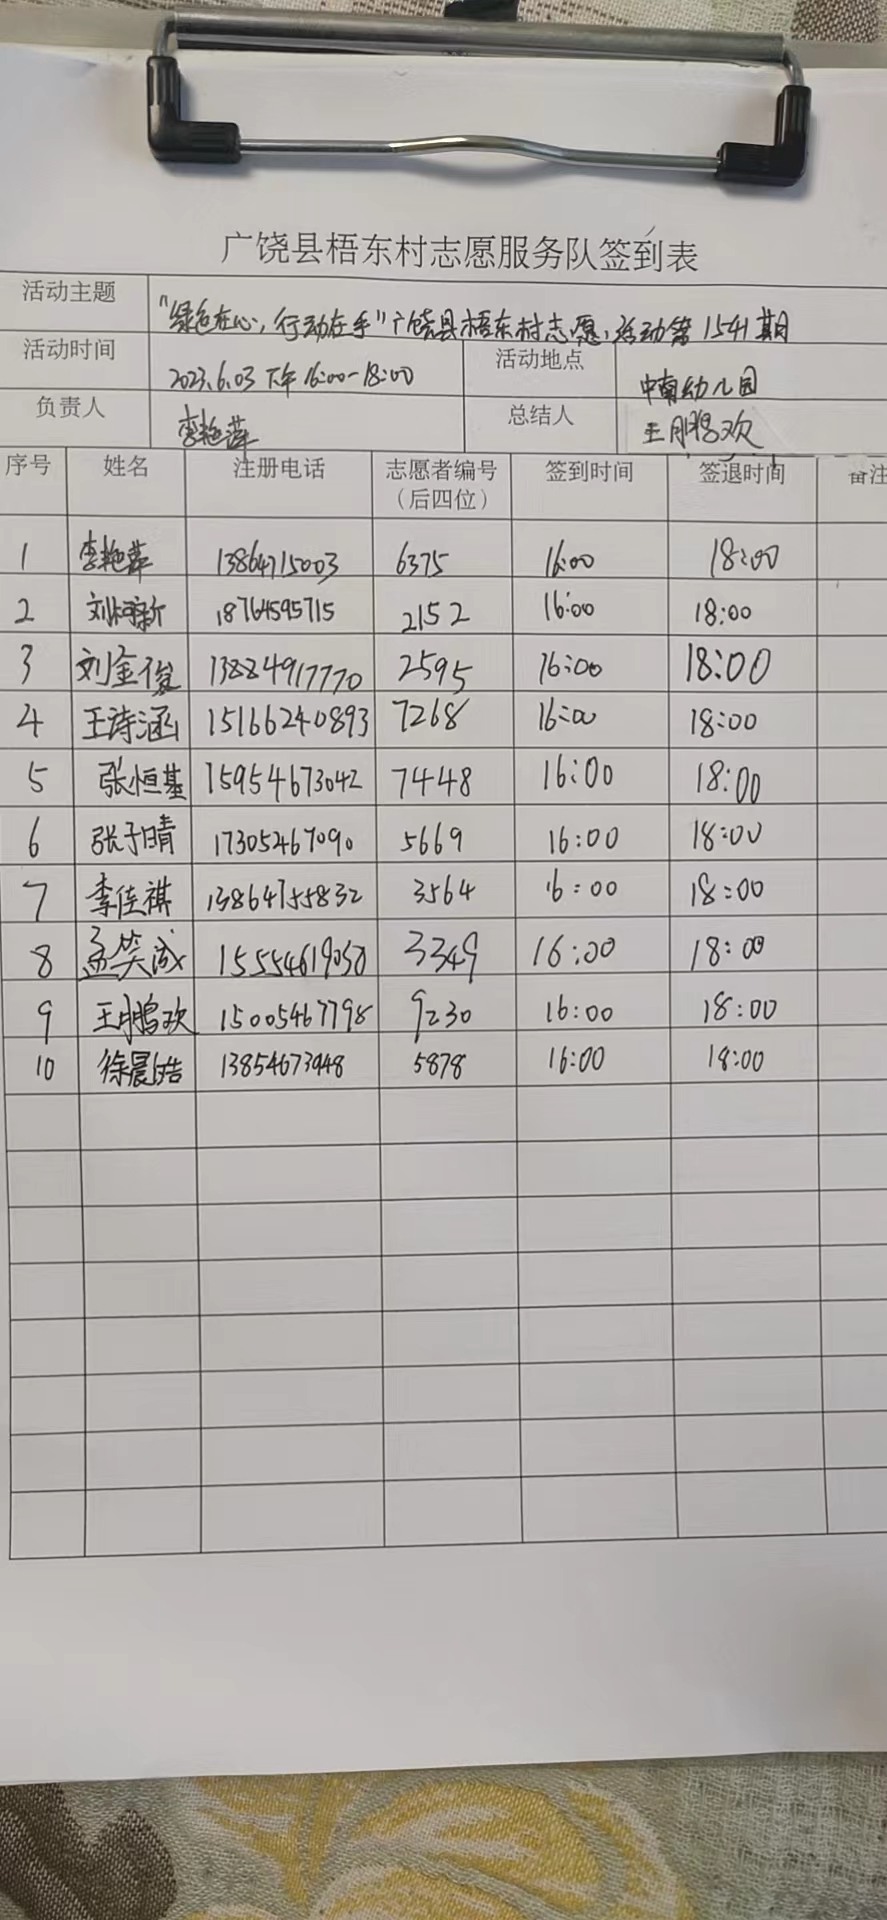 广饶县梧东村志愿服务队签到表
活动主题 "绿色在心,行动在手"广饶县梧东村志愿活动第1541期
活动时间 2023.6.03 下午16:00-18:00 活动地点 中南幼儿园
负责人 李艳萍 总结人 王鹏欢
序号 姓名 注册电话 志愿者编号(后四位) 签到时间 签退时间 备注
1 李艳萍 13864715003 6375 16:00 18:00
2 刘柯新 18764595715 2152 16:00 18:00
3 刘金俊 13884917770 2595 16:00 18:00
4 王诗涵 15166240893 7268 16:00 18:00
5 张恒基 15954673042 7448 16:00 18:00
6 张子晴 17305467090 5669 16:00 18:00
7 李佳祺 13864755832 3564 16:00 18:00
8 孟笑成 15554619050 3349 16:00 18:00
9 王鹏欢 15005467798 9230 16:00 18:00
10 徐晨皓 13854673948 5878 16:00 18:00